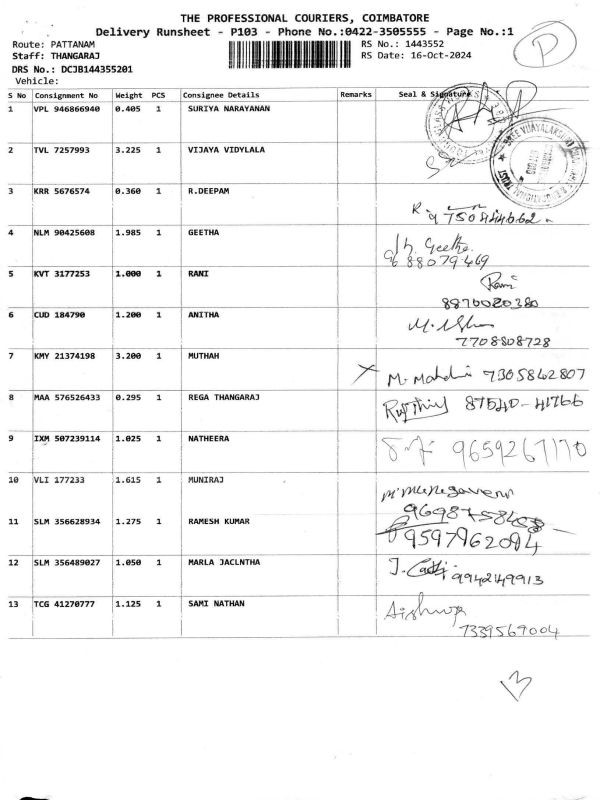 THE PROFESSIONAL COURIERS, COIMBATORE
Delivery Runsheet - P103 - Phone No.:0422-3505555 - Page No.:1
P
Route: PATTANAM
RS No.: 1443552
Staff: THANGARAJ
RS Date: 16-Oct-2024
DRS No.: DCJB144355201
Vehicle:
S No Consignment No Weight PCS Consignee Details Remarks Seal & Signature
1 VPL 946866940 0.405 1 SURIYA NARAYANAN
2 TVL 7257993 3.225 1 VIJAYA VIDYLALA
3 KRR 5676574 0.360 1 R.DEEPAM
4 NLM 90425608 1.985 1 GEETHA Geetha
9688079469
5 KVT 3177253 1.000 1 RANI Rani
8870020380
6 CUD 184790 1.200 1 ANITHA
7708808728
7 KMY 21374198 3.200 1 MUTHAH
7305842807
8 MAA 576526433 0.295 1 REGA THANGARAJ 87540-41766
9 IXM 507239114 1.025 1 NATHEERA 9659267170
10 VLI 177233 1.615 1 MUNIRAJ
11 SLM 356628934 1.275 1 RAMESH KUMAR
9597962094
12 SLM 356489027 1.050 1 MARLA JACLNTHA
9942249913
13 TCG 41270777 1.125 1 SAMI NATHAN
7339569004
13